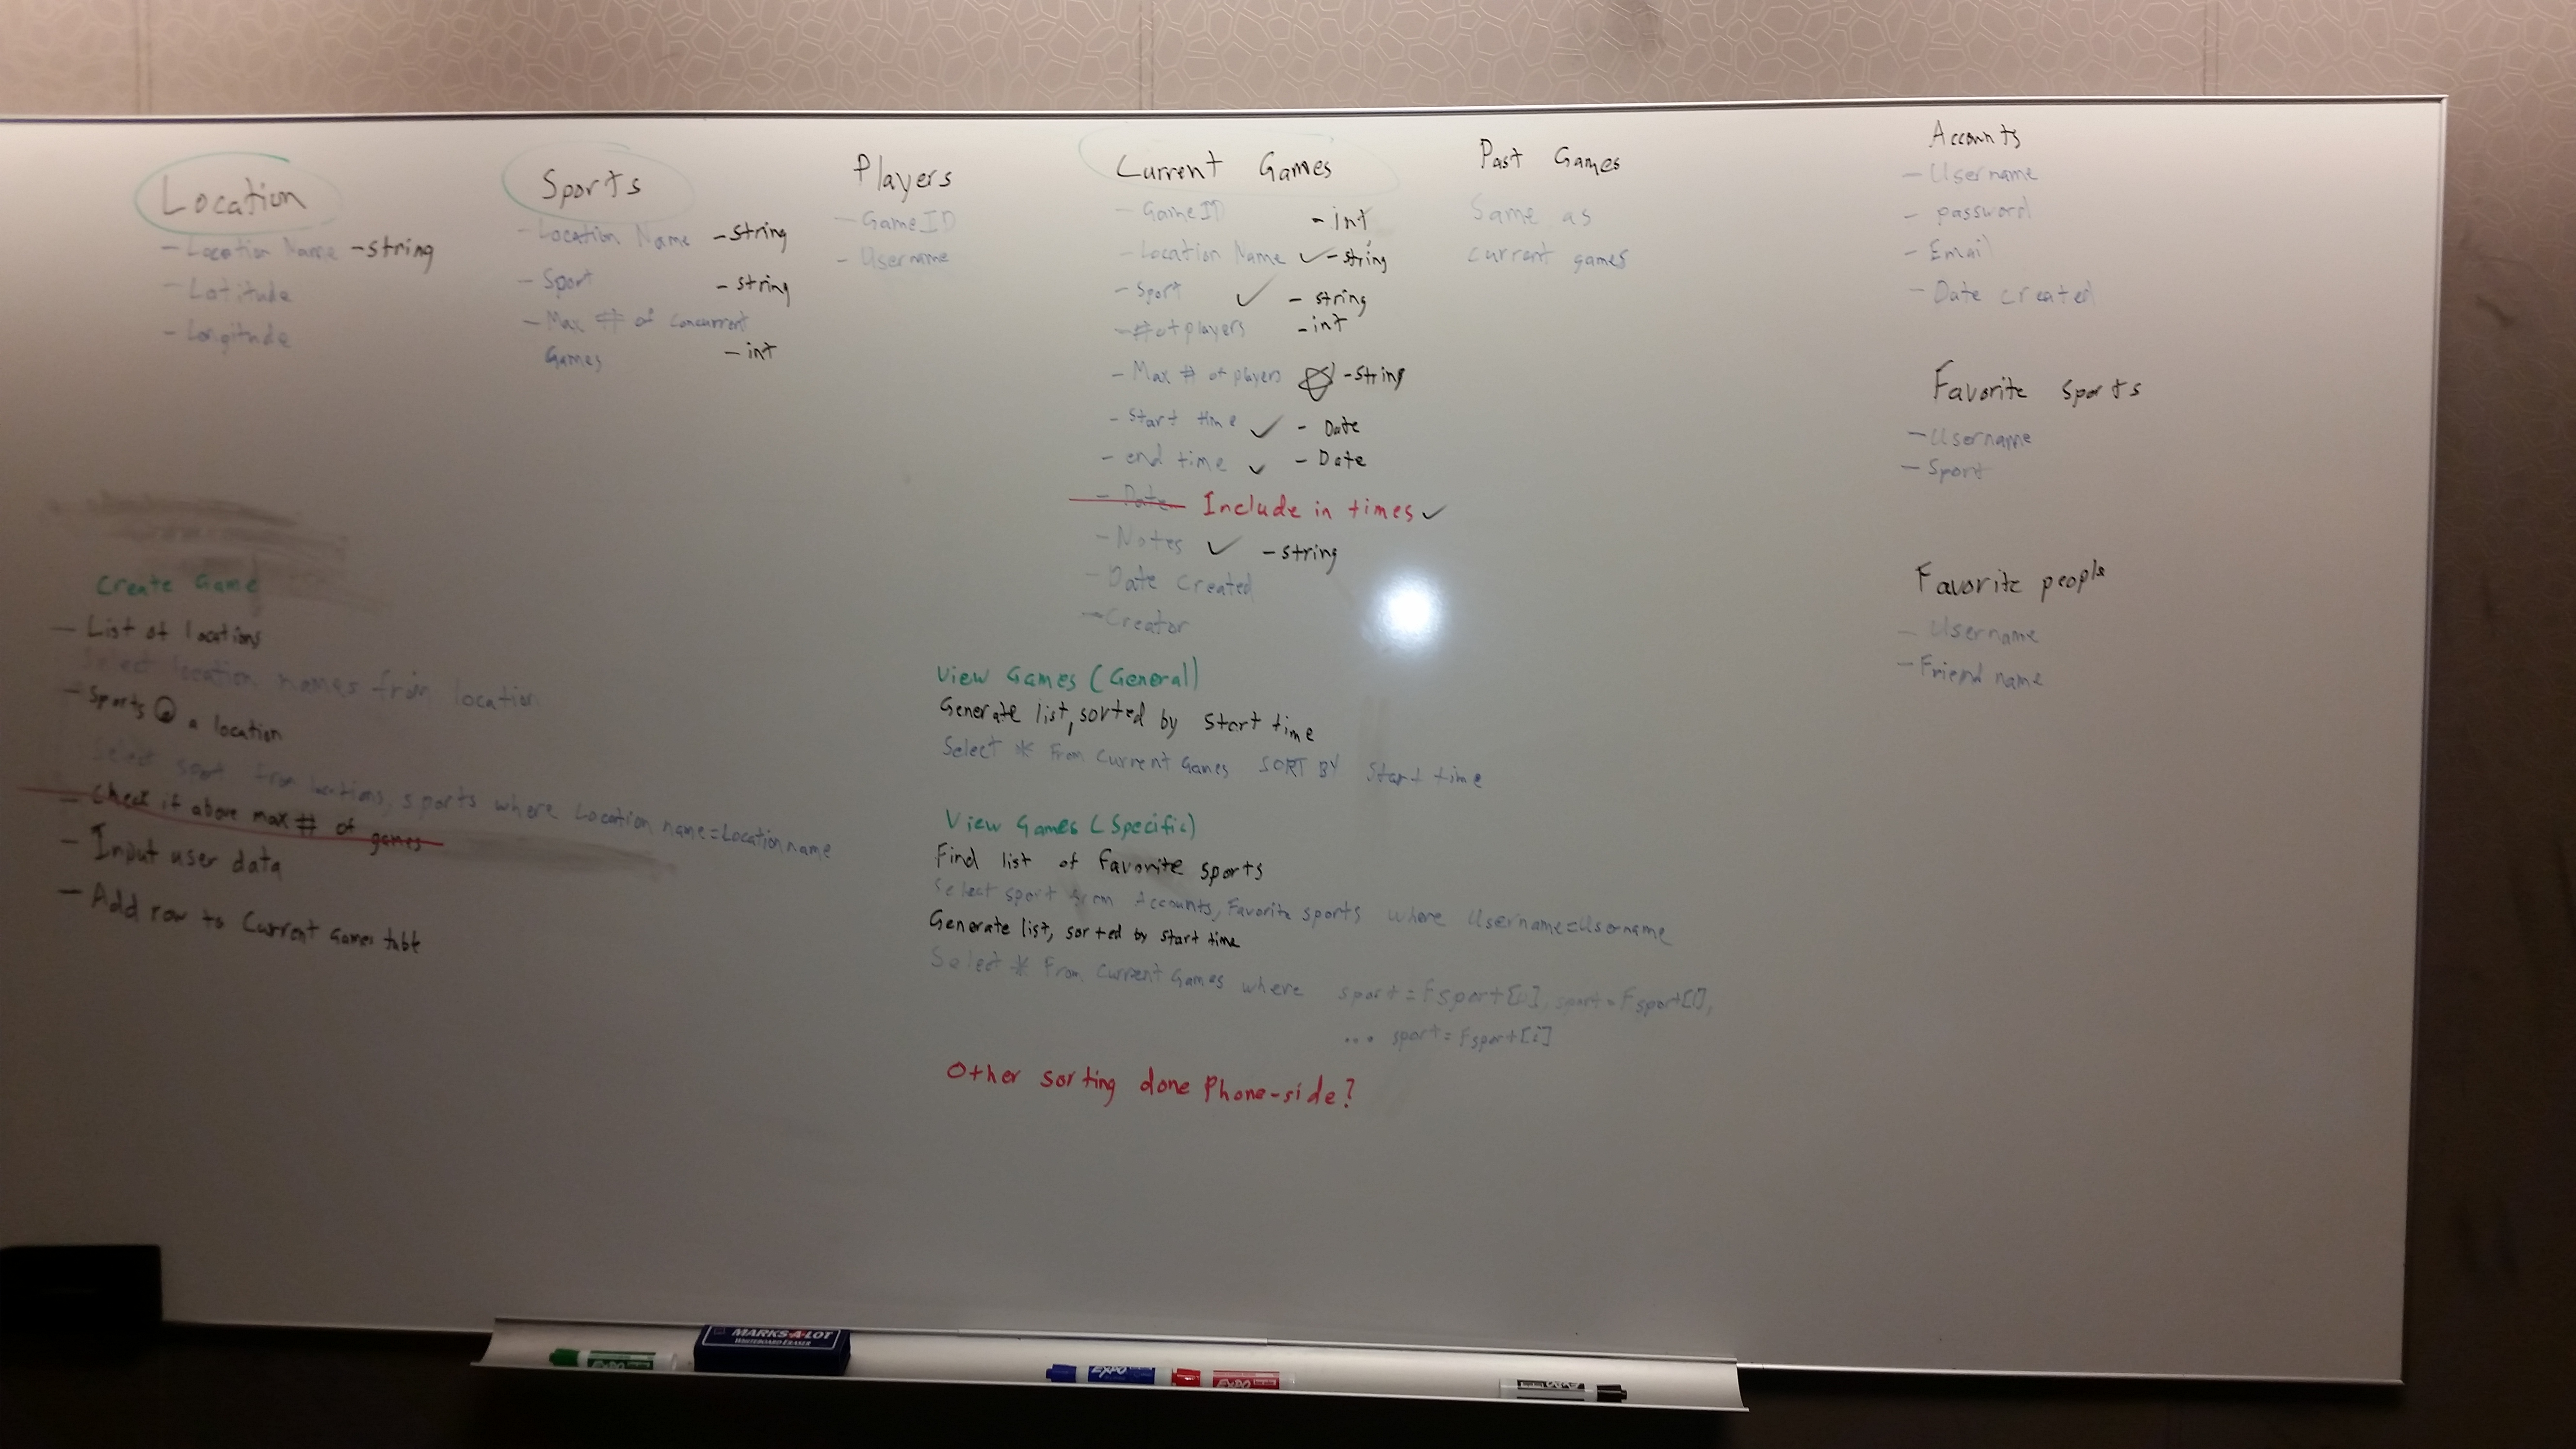 Location
- Location Name - string
- Latitude
- Longitude
Sports
- Location Name - string
- Sport - string
- Max # of concurrent
Games - int
Players
- GameID
- Username
Current Games
- GameID - int
- Location Name ✓ - string
- Sport ✓ - string
- # of players - int
- Max # of players - string
- Start time ✓ - Date
- end time ✓ - Date
- Date Include in times ✓
- Notes ✓ - string
- Date Created
- Creator
Past Games
Same as
current games
Accounts
- Username
- password
- Email
- Date created
Favorite sports
- Username
- Sport
Favorite people
- Username
- Friend name
Create Game
- List of locations
Select location names from location
- Sports @ a location
Select sport from locations, sports where Location name=Location name
- Check if above max # of games
- Input user data
- Add row to Current Games table
View Games (General)
Generate list, sorted by Start time
Select * From Current Games SORT BY Start time
View Games (Specific)
Find list of favorite sports
Select sport from Accounts, Favorite sports where Username=Username
Generate list, sorted by start time
Select * From Current Games where sport = Fsport[0], sport = Fsport[1],
... sport = Fsport[i]
Other sorting done Phone-side?
MARKS-A-LOT
WHITEBOARD ERASER
EXPO
EXPO
EXPO
EXPO